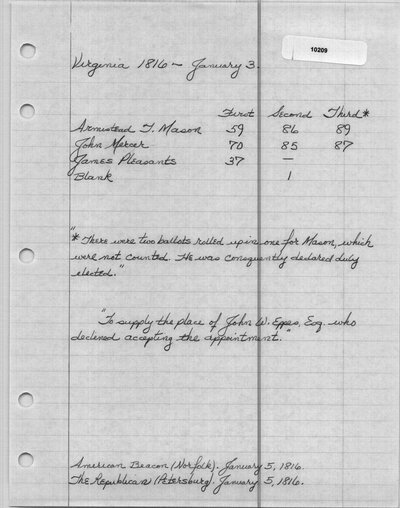 10209
Virginia 1816 - January 3.
First Second Third*
Armistead T. Mason 59 86 89
John Mercer 70 85 87
James Pleasants 37 —
Blank 1
"* There were two ballots rolled up in one for Mason, which
were not counted. He was consequently declared duly
elected."
"To supply the place of John W. Eppes, Esq. who
declined accepting the appointment."
American Beacon (Norfolk). January 5, 1816.
The Republican (Petersburg). January 5, 1816.